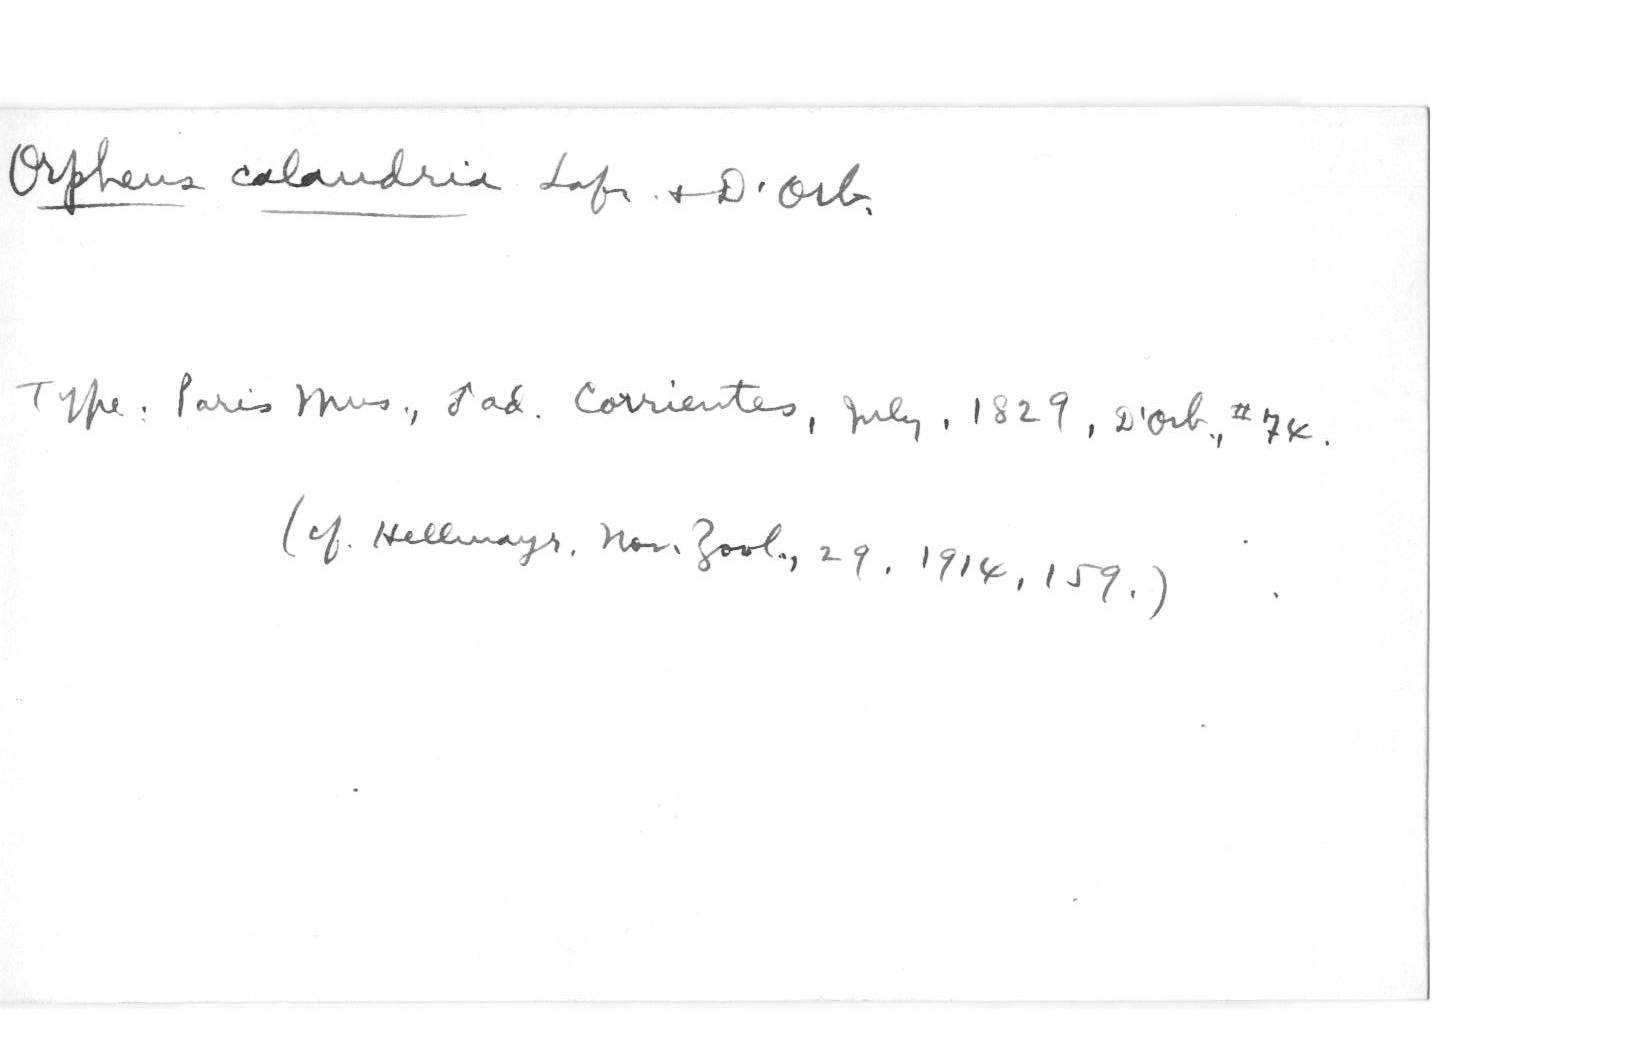 Orpheus calandria Lafr. + D'Orb.
Type: Paris Mus., ♂ ad. Corrientes, July, 1829, D'Orb., #74.
(cf. Hellmayr, Nov. Zool., 29, 1914, 159.)